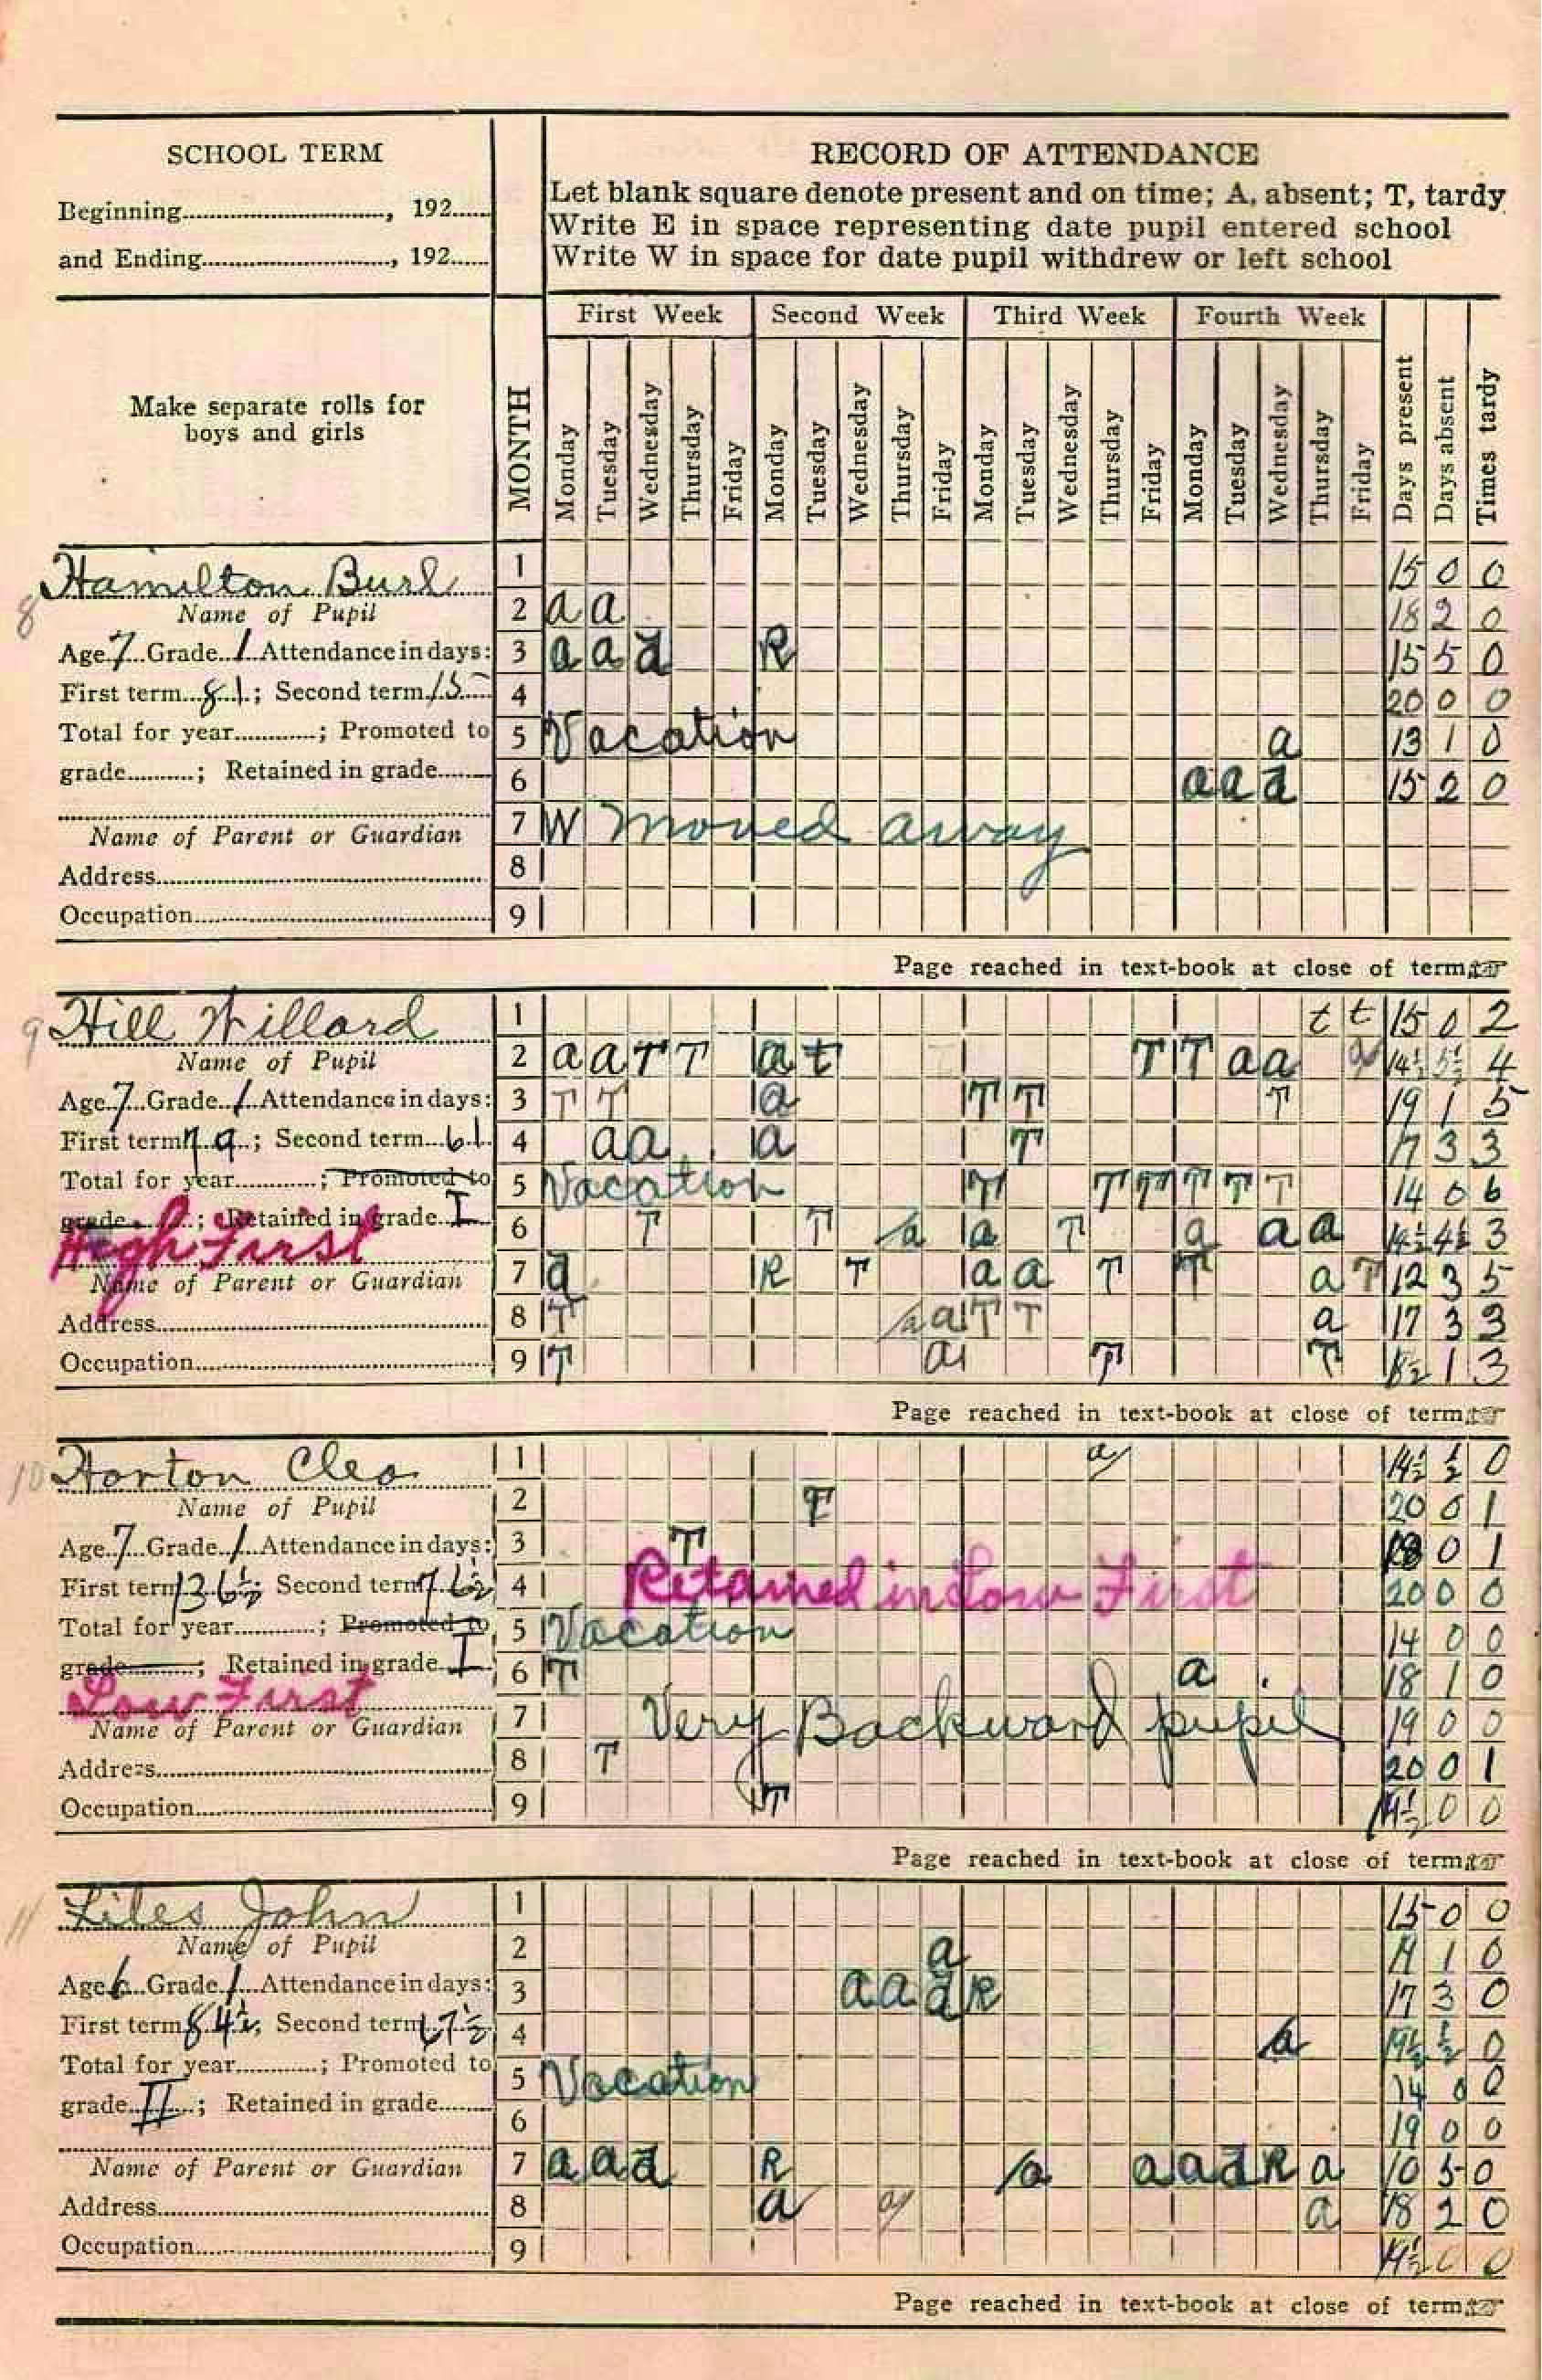 SCHOOL TERM
Beginning............................., 192......
and Ending............................., 192......
MONTH
RECORD OF ATTENDANCE
Let blank square denote present and on time; A, absent; T, tardy
Write E in space representing date pupil entered school
Write W in space for date pupil withdrew or left school
Make separate rolls for
boys and girls
First Week Second Week Third Week Fourth Week
Monday Tuesday Wednesday Thursday Friday Monday Tuesday Wednesday Thursday Friday Monday Tuesday Wednesday Thursday Friday Monday Tuesday Wednesday Thursday Friday Days present Days absent Times tardy
8 Hamilton Burl
Name of Pupil
Age 7 Grade 1 Attendance in days:
First term 81; Second term 15
Total for year............; Promoted to
grade..........; Retained in grade........
Name of Parent or Guardian
Address
Occupation
1 15 0 0
2 a a 18 2 0
3 a a a R 15 5 0
4 20 0 0
5 Vacation a 13 1 0
6 a a a 15 2 0
7 W Moved away
8
9
Page reached in text-book at close of term
9 Hill Willard
Name of Pupil
Age 7 Grade 1 Attendance in days:
First term 79; Second term 61
Total for year............; Promoted to
grade; Retained in grade I
High First
Name of Parent or Guardian
Address
Occupation
1 t t 15 0 2
2 a a T T a t T T a a a 14½ 5½ 4
3 T T a T T T 19 1 5
4 a a a T 17 3 3
5 Vacation T T T T T T 14 0 6
6 T T a a T a a a 14½ 4½ 3
7 a R T a a T T a T 12 3 5
8 T a a T T a 17 3 3
9 T a T T 1 3
Page reached in text-book at close of term
10 Horton Cleo
Name of Pupil
Age 7 Grade 1 Attendance in days:
First term 136½; Second term 76½
Total for year............; Promoted to
grade; Retained in grade I
Low First
Name of Parent or Guardian
Address
Occupation
1 a 14½ ½ 0
2 T 20 0 1
3 T 0 1
4 Retained in Low First 20 0 0
5 Vacation 14 0 0
6 T a 18 1 0
7 Very Backward pupil 19 0 0
8 T 20 0 1
9 T 14½ 0 0
Page reached in text-book at close of term
11 Liles John
Name of Pupil
Age 6 Grade 1 Attendance in days:
First term 84½; Second term 67½
Total for year............; Promoted to
grade II; Retained in grade........
Name of Parent or Guardian
Address
Occupation
1 15 0 0
2 a 1 0
3 a a a R 17 3 0
4 a 19½ ½ 0
5 Vacation 14 0 0
6 19 0 0
7 a a a R a a a a R a 10 5 0
8 a a a 18 2 0
9 14½ 0 0
Page reached in text-book at close of term